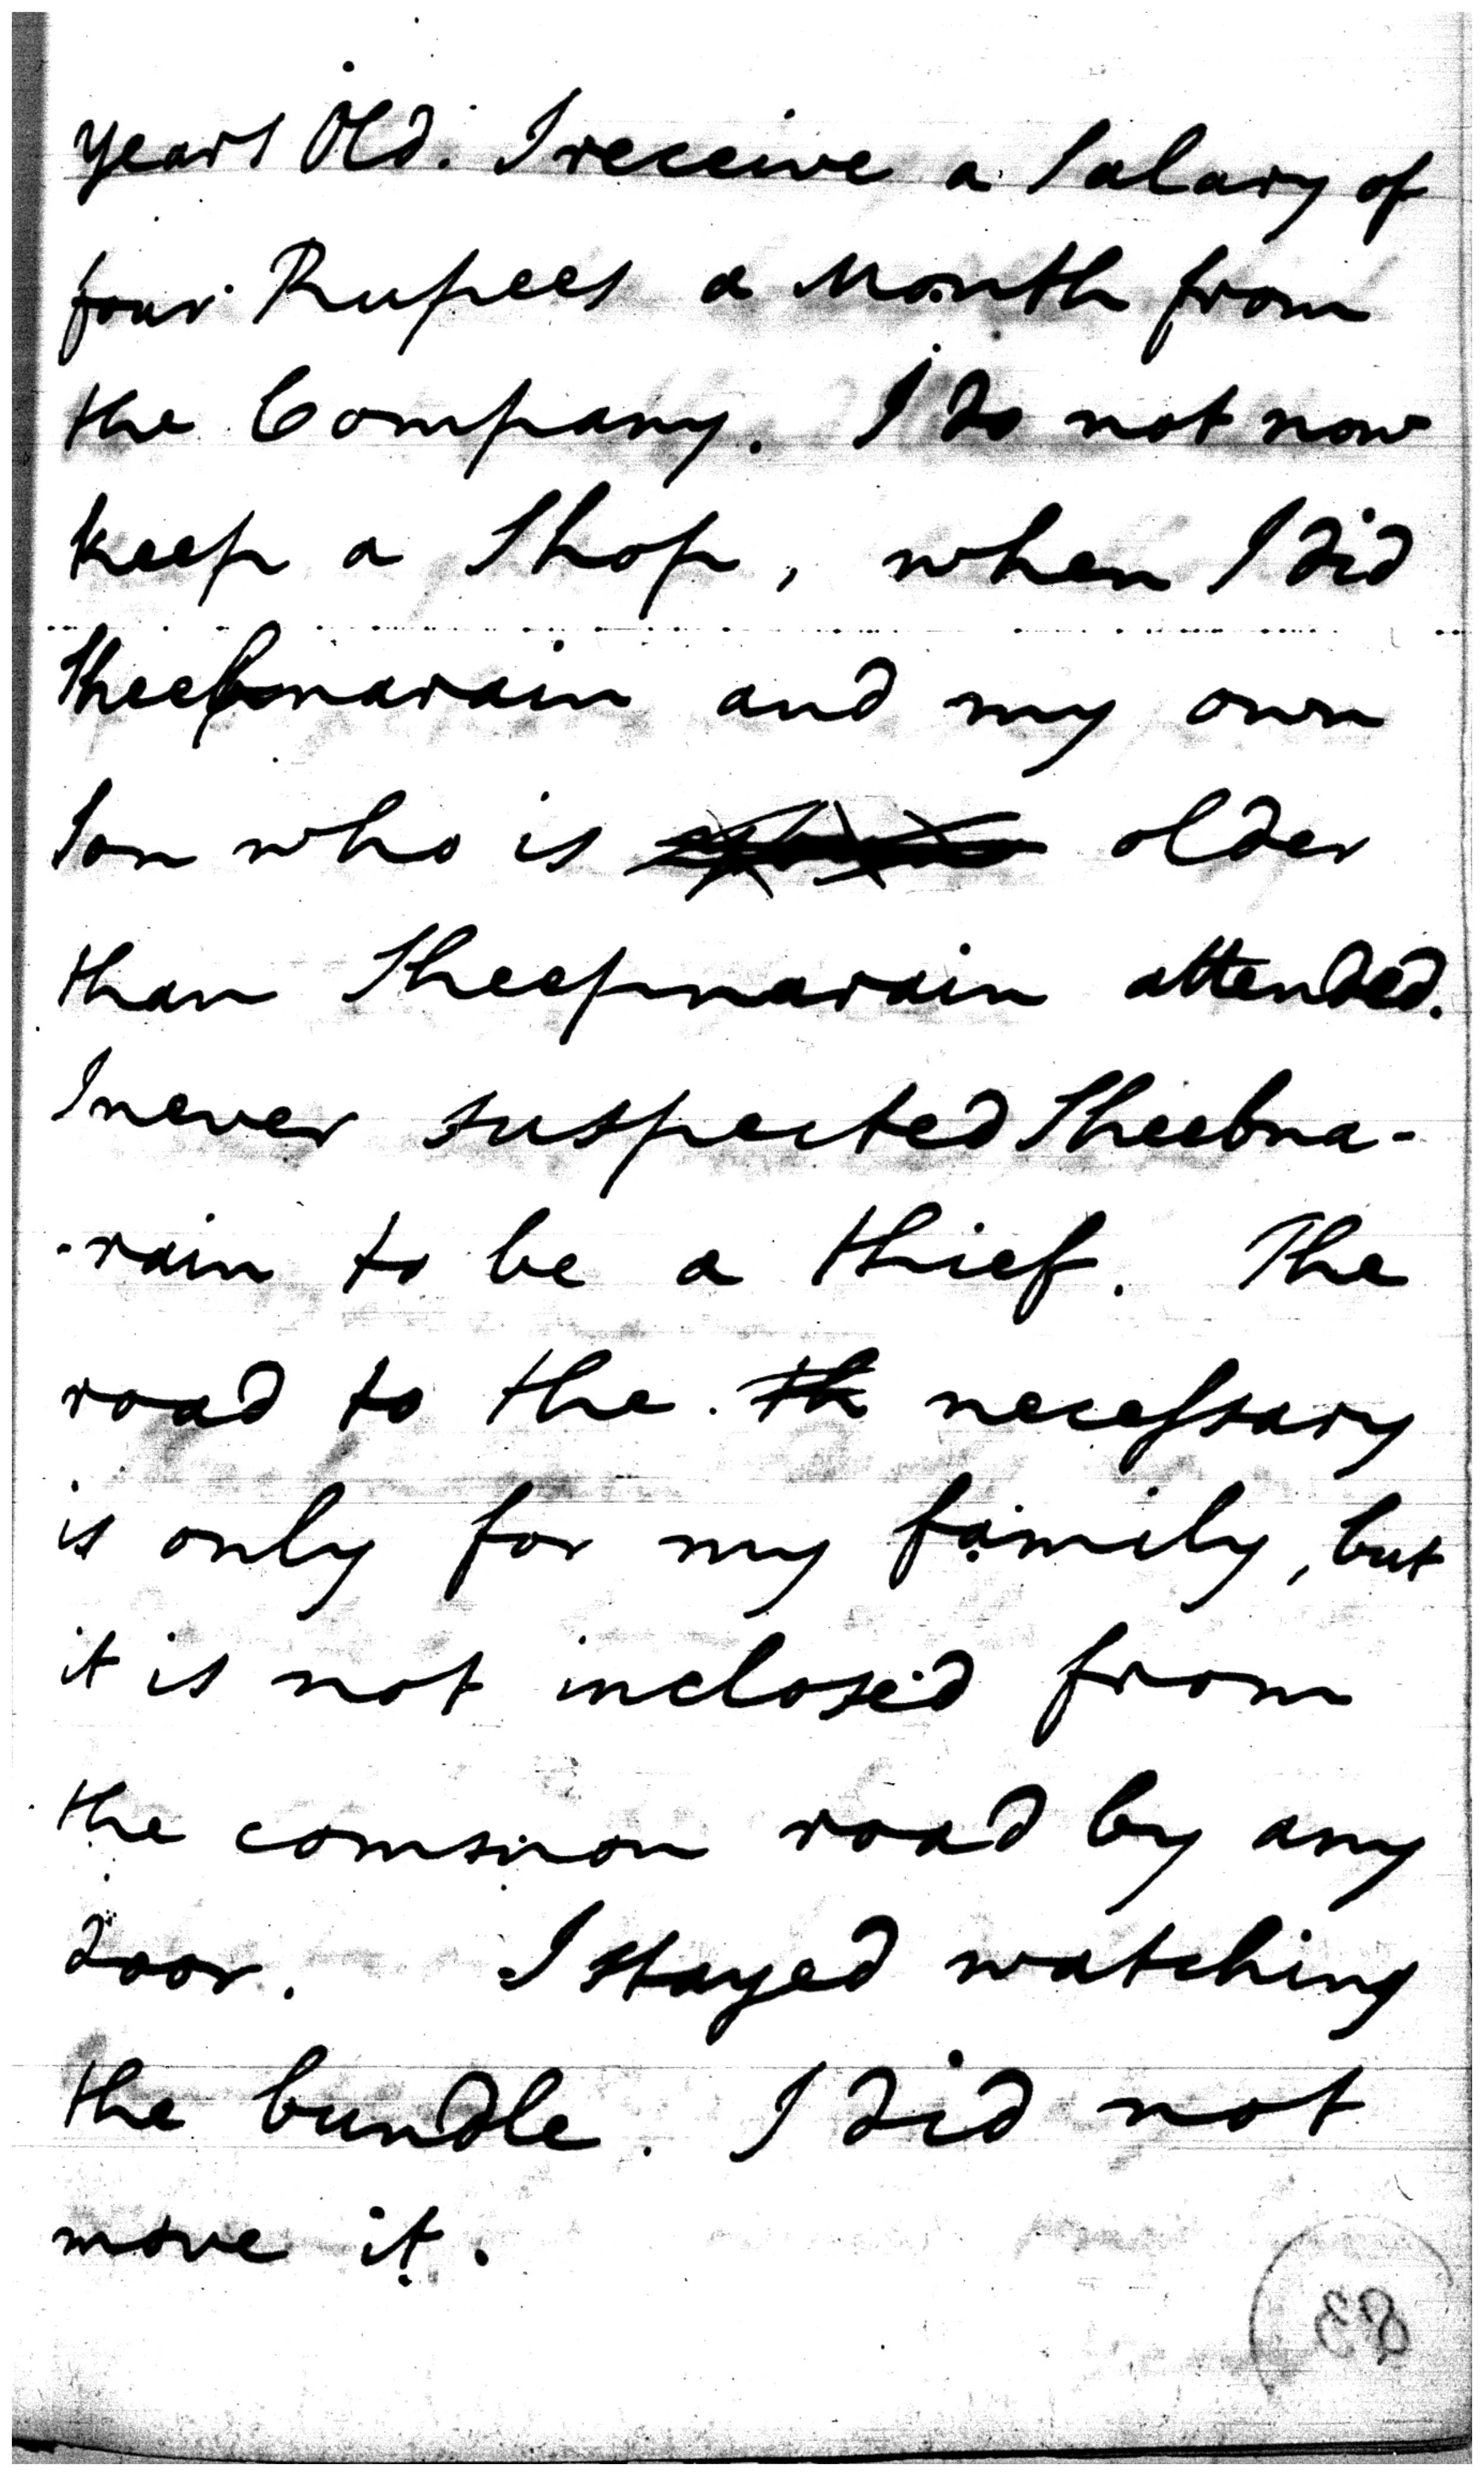 years Old. I receive a Salary of
four Rupees a Month from
the Company. I do not now
keep a Shop, when I did
Sheebnarain and my own
Son who is older
than Sheepnarain attended.
I never suspected Sheebna-
-rain to be a thief. The
road to the th necessary
is only for my family, but
it is not inclosed from
the common road by any
door. I stayed watching
the bundle. I did not
move it.
83